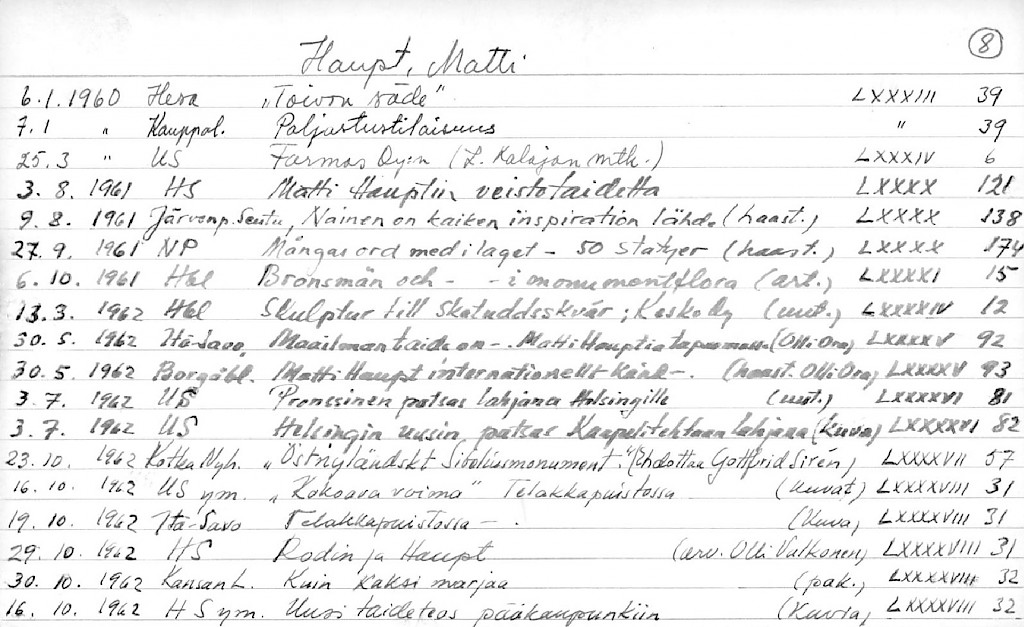 8
Haupt, Matti
6.1.1960 Heva "Toivon säde" LXXXIII 39
7.1 " Kauppal. Paljastustilaisuus " 39
25.3 " US Farmos Oy:n (L. Kalajan mtk.) LXXXIV 6
3.8. 1961 HS Matti Hauptin veistotaidetta LXXXX 121
9.8. 1961 Järvenp. Seutu, Nainen on kaiken inspiration lähde (haast.) LXXXX 138
27.9. 1961 NP Mångas ord med i laget - 50 statyer (haast.) LXXXX 174
6.10. 1961 Hbl Bronsmän och - - i monumentflora (art.) LXXXXI 15
13.3. 1962 Hbl Skulptur till Skatuddsskvär; Kesko Oy (uut.) LXXXXIV 12
30.5. 1962 Itä-Savo, Maailman taide on -. Matti Hauptia tapaamassa (Olli Ora) LXXXXV 92
30.5. 1962 Borgåbl. Matti Haupt internationellt känd -. (haast. Olli Ora) LXXXXV 93
3.7. 1962 US Pronssinen patsas lahjana Helsingille (uut.) LXXXXVI 81
3.7. 1962 US Helsingin uusin patsas Kaapelitehtaan lahjana (kuva) LXXXXVI 82
23.10. 1962 Kotka Nyh. "Östnyländskt Sibeliusmonument." (Ehdottaa Gottfrid Sirén) LXXXXVII 57
16.10. 1962 US ym. "Kokoava voima" Telakkapuistossa (kuvat) LXXXXVIII 31
19.10. 1962 Itä-Savo Telakkapuistossa -. (kuva) LXXXXVIII 31
29.10. 1962 HS Rodin ja Haupt (arv. Olli Valkonen) LXXXXVIII 31
30.10. 1962 Kansan L. Kuin kaksi marjaa (pak.) LXXXXVIII 32
16.10. 1962 HS ym. Uusi taideteos pääkaupunkiin (Kuvia) LXXXXVIII 32